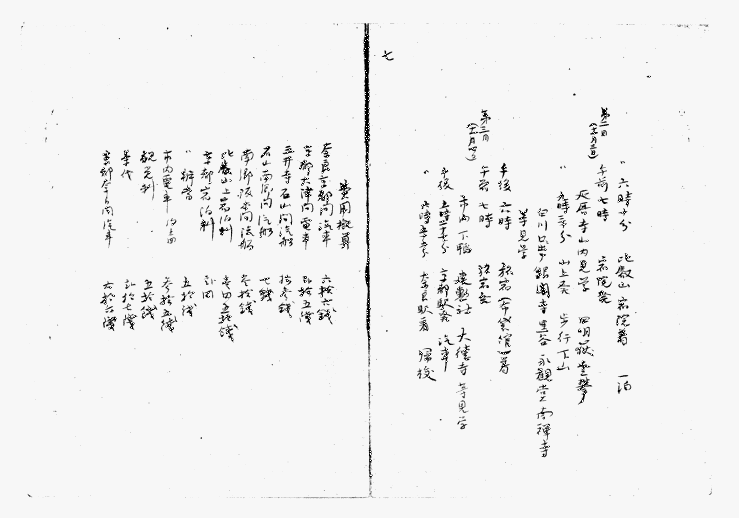 〃 六時十分 比叡山宿院着 一泊
第二日
午前七時 宿院発
延暦寺山内見学 四明嶽登攀
〃 九時三十分 山上発 歩行下山
白川口出 銀閣寺 黒谷 永観堂 南禅寺
等見学
午後六時
第三日
午前七時 旅宿発
市内下鴨 大徳寺等見学
午後 五時三十分 京都駅発 汽車
〃 六時 奈良駅着 帰校
七
費用概算
奈良京都間汽車 六拾六銭
京都大津間電車 弐拾五銭
三井寺石山間汽船 拾参銭
石山南郷間汽船 七銭
南郷坂本間汽船 参拾銭
比叡山上宿泊料 壱円五拾銭
京都宿泊料 弐円
〃 辨当 五拾銭
市内電車 参拾五銭
観覧料 五拾銭
茶代 弐拾七銭
京都奈良間汽車 六拾六銭